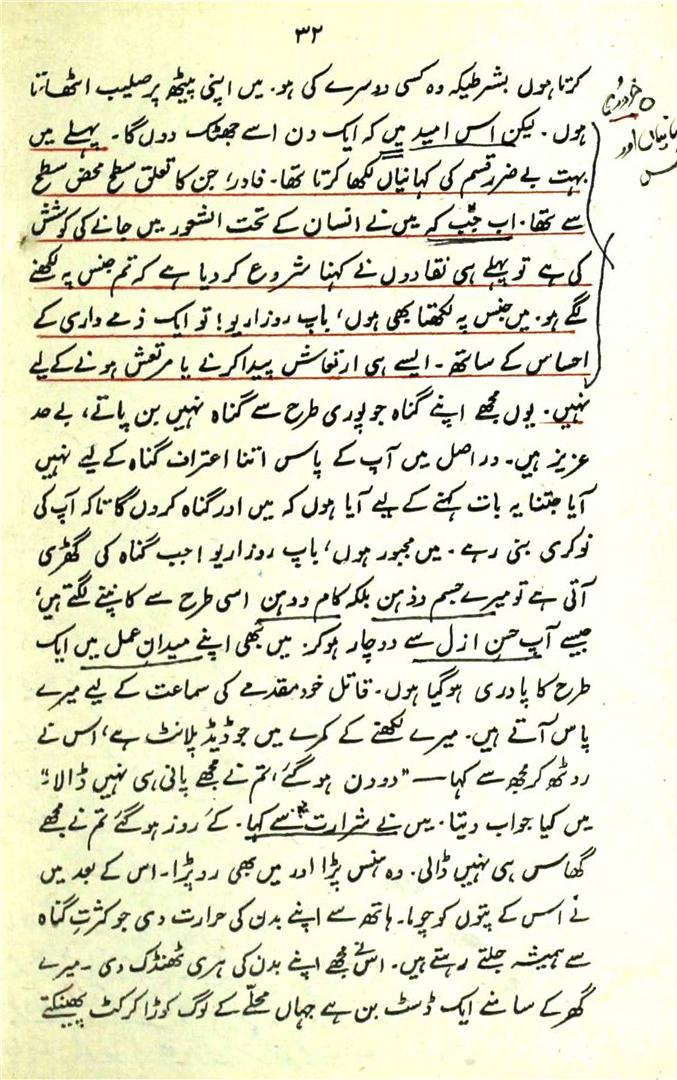 ۳۲
کرتا ہوں بشرطیکہ وہ کسی دوسرے کی ہو. میں اپنی پیٹھ پر صلیب اٹھاتا
ہوں. لیکن اس امید میں کہ ایک دن اسے جھٹک دوں گا. پہلے میں
بہت بے ضرر قسم کی کہانیاں لکھا کرتا تھا۔ فادر! جن کا تعلق سطح محض سطح
سے تھا. اب جب کہ میں نے انسان کے تحت الشعور میں جانے کی کوشش
کی ہے تو پہلے ہی نقادوں نے کہنا شروع کر دیا ہے کہ تم جنس پہ لکھنے
لگے ہو. میں جنس پہ لکھتا بھی ہوں، باپ روزاریو! تو ایک ذمے داری کے
احساس کے ساتھ ۔ ایسے ہی ارتعاش پیدا کرنے یا مرتعش ہونے کے لیے
نہیں. یوں مجھے اپنے گناہ جو پوری طرح سے گناہ نہیں بن پاتے، بے حد
عزیز ہیں۔ در اصل میں آپ کے پاس اتنا اعتراف گناہ کے لیے نہیں
آیا جتنا یہ بات کہنے کے لیے آیا ہوں کہ میں اور گناہ کروں گا تا کہ آپ کی
نوکری بنی رہے. میں مجبور ہوں، باپ روزاریو! جب گناہ کی گھڑی
آتی ہے تو میرے جسم و ذہن بلکہ کام و دہن اسی طرح سے کانپنے لگتے ہیں،
جیسے آپ حسن ازل سے دو چار ہوکر. میں بھی اپنے میدان عمل میں ایک
طرح کا پادری ہو گیا ہوں۔ قاتل خود مقدمے کی سماعت کے لیے میرے
پاس آتے ہیں. میرے لکھنے کے کمرے میں جو ڈیڈ پلانٹ ہے، اس نے
روٹھ کر مجھ سے کہا — "دو دن ہو گئے، تم نے مجھے پانی ہی نہیں ڈالا"
میں کیا جواب دیتا. میں نے شرارت سے کہا. کے روز ہو گئے تم نے مجھے
گھاس ہی نہیں ڈالی. وہ ہنس پڑا اور میں بھی رو پڑا۔ اس کے بعد میں
نے اس کے پتوں کو چوما۔ ہاتھ سے اپنے بدن کی حرارت دی جو کثرتِ گناہ
سے ہمیشہ جلتے رہتے ہیں. اس نے مجھے اپنے بدن کی ہری ٹھنڈک دی ۔ میرے
گھر کے سامنے ایک ڈسٹ بن ہے جہاں محلّے کے لوگ کوڑا کرکٹ پھینکتے